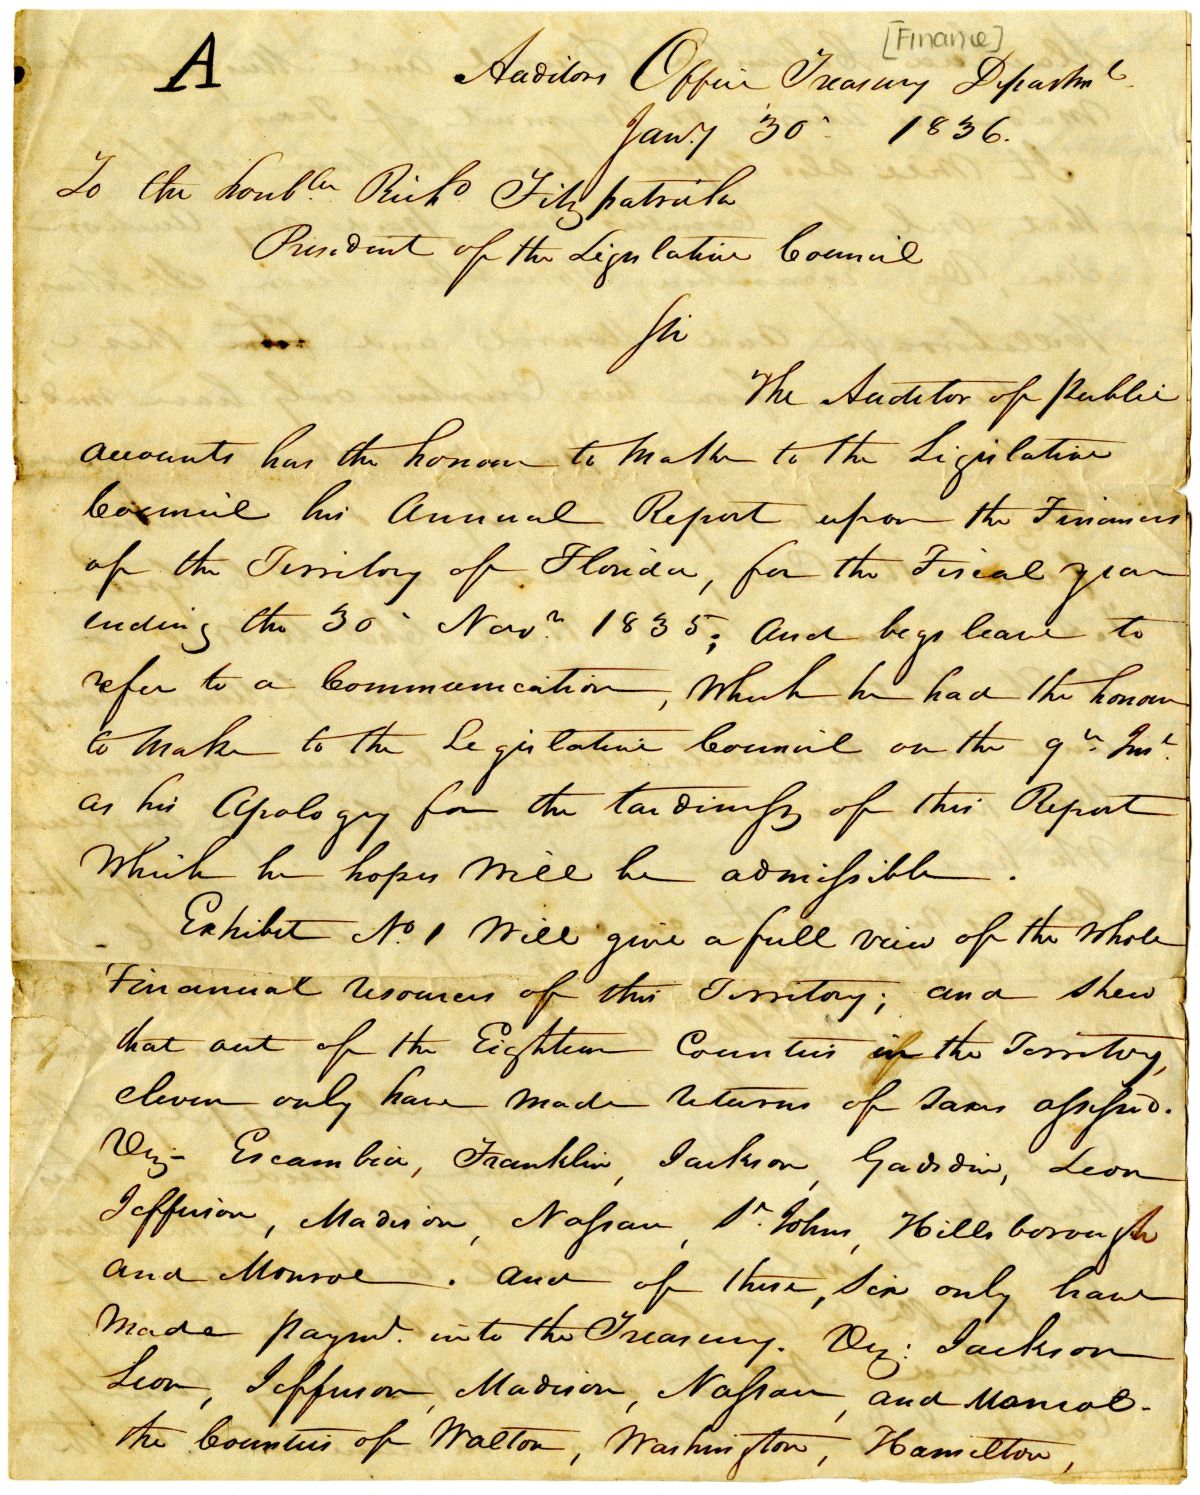 [Finance]
A Auditors Office Treasury Departmt.
Jany 30 1836.
To the honble. Richd Fitzpatrick
President of the Legislative Council
Sir
The Auditor of public
accounts has the honour to make to the Legislative
Council his Annual Report upon the Finances
of the Territory of Florida, for the Fiscal year
ending the 30 Novr. 1835; And begs leave to
refer to a Communication, which he had the honour
to make to the Legislative Council on the 9th Inst.
as his Apology for the tardiness of this Report
which he hopes will be admissible.
Exhibit No. 1 Will give a full view of the whole
Financial resources of this Territory; and shew
that out of the Eighteen Counties in the Territory,
eleven only have made returns of Taxes assessed.
Viz- Escambia, Franklin, Jackson, Gadsden, Leon
Jefferson, Madison, Nassau, St. Johns, Hillsborough
and Monroe. And of these, six only have
made paymt. into the Treasury. Viz: Jackson
Leon, Jefferson, Madison, Nassau, and Monroe.
the Counties of Walton, Washington, Hamilton,